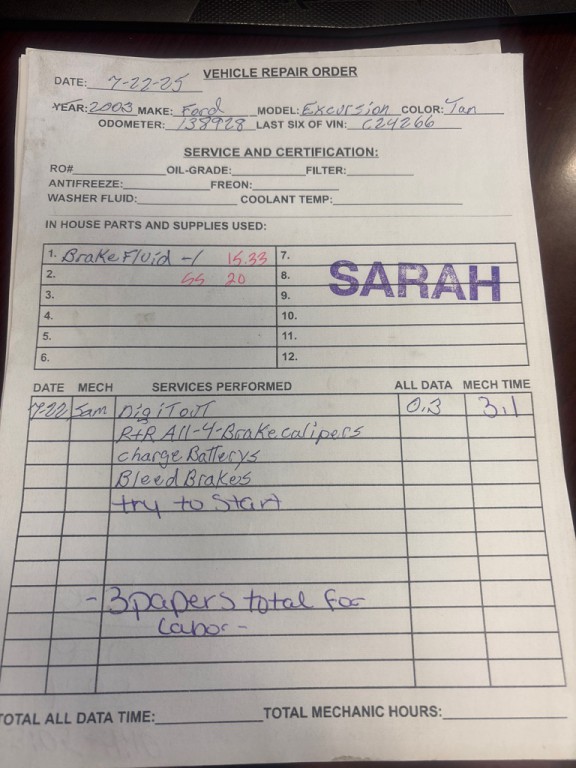 VEHICLE REPAIR ORDER
DATE: 7-22-25
YEAR: 2003 MAKE: Ford MODEL: Excursion COLOR: Tan
ODOMETER: 138928 LAST SIX OF VIN: C24266
SERVICE AND CERTIFICATION:
RO# OIL-GRADE: FILTER:
ANTIFREEZE: FREON:
WASHER FLUID: COOLANT TEMP:
IN HOUSE PARTS AND SUPPLIES USED:
1. Brake Fluid -1 15.33 7.
2. SS 20 8.
SARAH
3. 9.
4. 10.
5. 11.
6. 12.
DATE MECH SERVICES PERFORMED ALL DATA MECH TIME
7-22 Sam Dig iT ouT 0.3 3.1
R+R All-4-Brake calipers
charge Batterys
Bleed Brakes
try to Start
- 3 papers total for
labor -
TOTAL ALL DATA TIME: TOTAL MECHANIC HOURS: